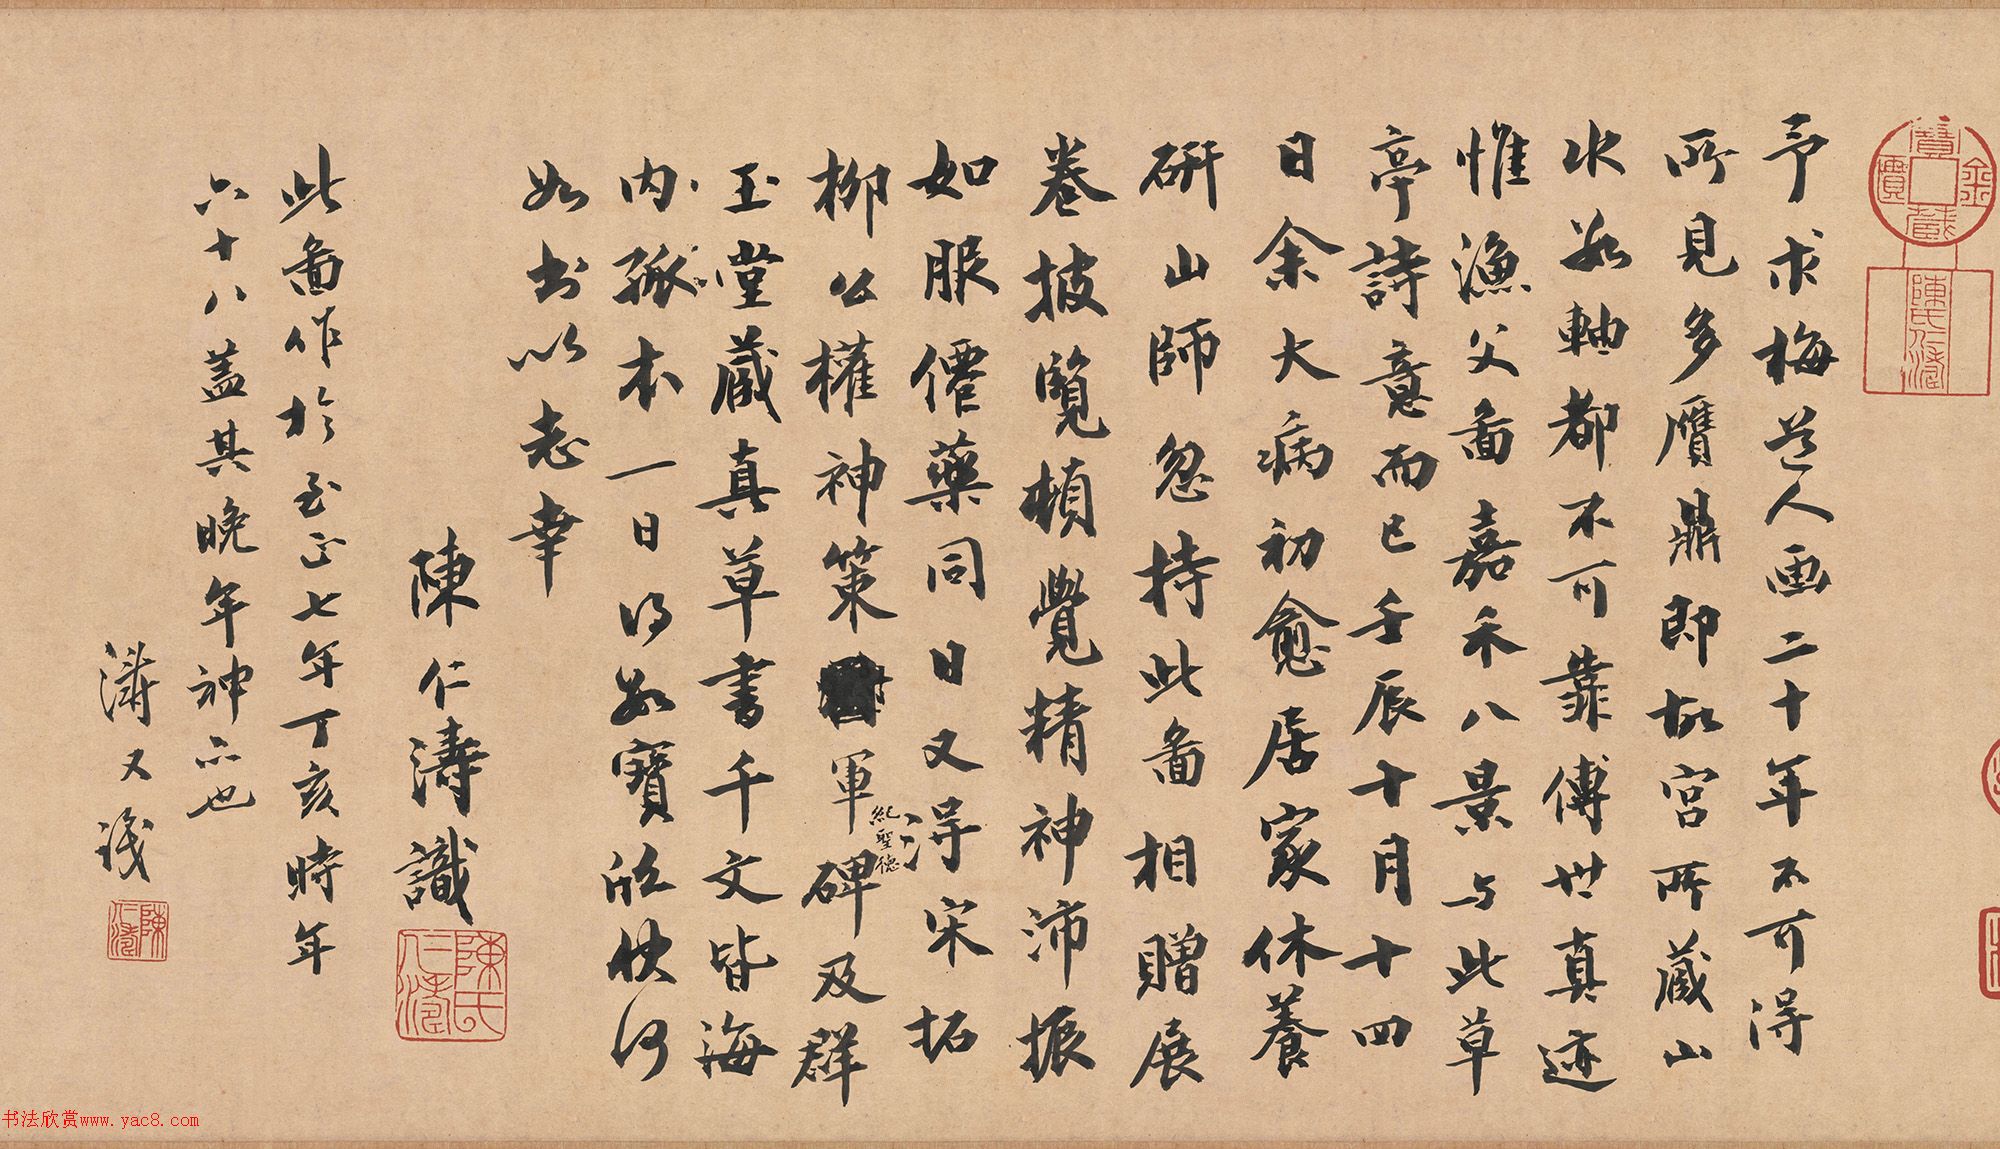 予求梅道人画二十年不可得
所見多贋鼎即故宮所藏山
水數軸都不可靠傳世真迹
惟漁父畵嘉禾八景与此草
亭詩意而已壬辰十月十四
日余大病初愈居家休養
研山師忽持此畵相贈展
卷披覽頓覺精神沛振
如服僊藥同日又得宋拓
柳公權神策軍紀聖德碑及群
玉堂藏真草書千文皆海
内孤本一日得數寶欣快何
如書以志幸
陳仁濤識
此畵作於至正七年丁亥時年
六十八蓋其晚年神品也
濤又識
陳仁濤
陳氏仁濤
金匱寶藏
陳氏仁濤
书法欣赏www.yac8.com